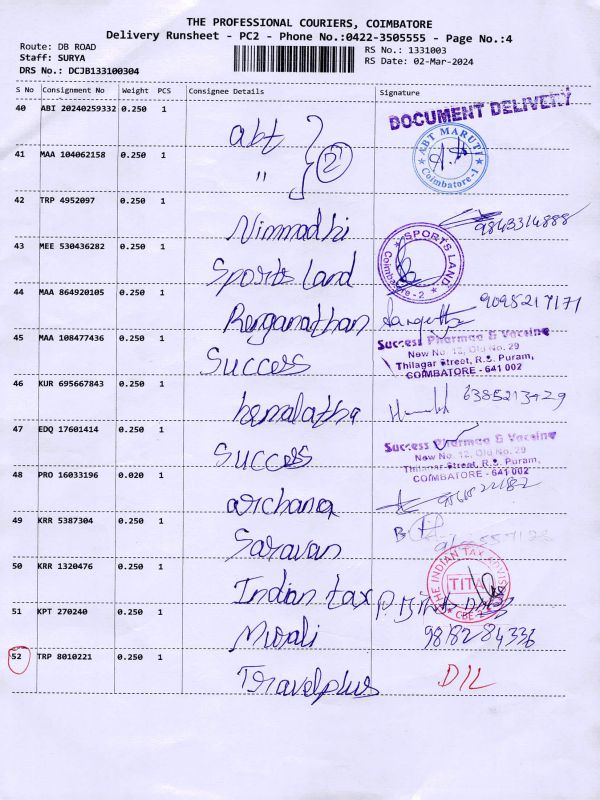 THE PROFESSIONAL COURIERS, COIMBATORE
Delivery Runsheet - PC2 - Phone No.:0422-3505555 - Page No.:4
Route: DB ROAD
RS No.: 1331003
Staff: SURYA
RS Date: 02-Mar-2024
DRS No.: DCJB133100304
S No Consignment No Weight PCS Consignee Details Signature
40 ABI 20240259332 0.250 1 abt
DOCUMENT DELIVERY
ABT MARUTI
Coimbatore-1
41 MAA 104062158 0.250 1 " 2
42 TRP 4952097 0.250 1 Nimmadhi 9843314888
43 MEE 530436282 0.250 1 Sports land
SPORTS LAND
Coimbatore - 2
44 MAA 864920105 0.250 1 Renganathan Sangeetha 9095217171
45 MAA 108477436 0.250 1 Success
Success Pharmaa & Vaccine
New No. 12, Old No. 29
Thilagar Street, R.S. Puram,
COIMBATORE - 641 002
46 KUR 695667843 0.250 1 hemalatha 6385213429
47 EDQ 17601414 0.250 1 Success
Success Pharmaa & Vaccine
New No. 12, Old No. 29
Thilagar Street, R.S. Puram,
COIMBATORE - 641 002
48 PRO 16033196 0.020 1 archana
49 KRR 5387304 0.250 1 Saravan
50 KRR 1320476 0.250 1 Indian tax
THE INDIAN TAX
TITA
CBE
51 KPT 270240 0.250 1 Murali 9818284336
52 TRP 8010221 0.250 1 Travelplus D/L